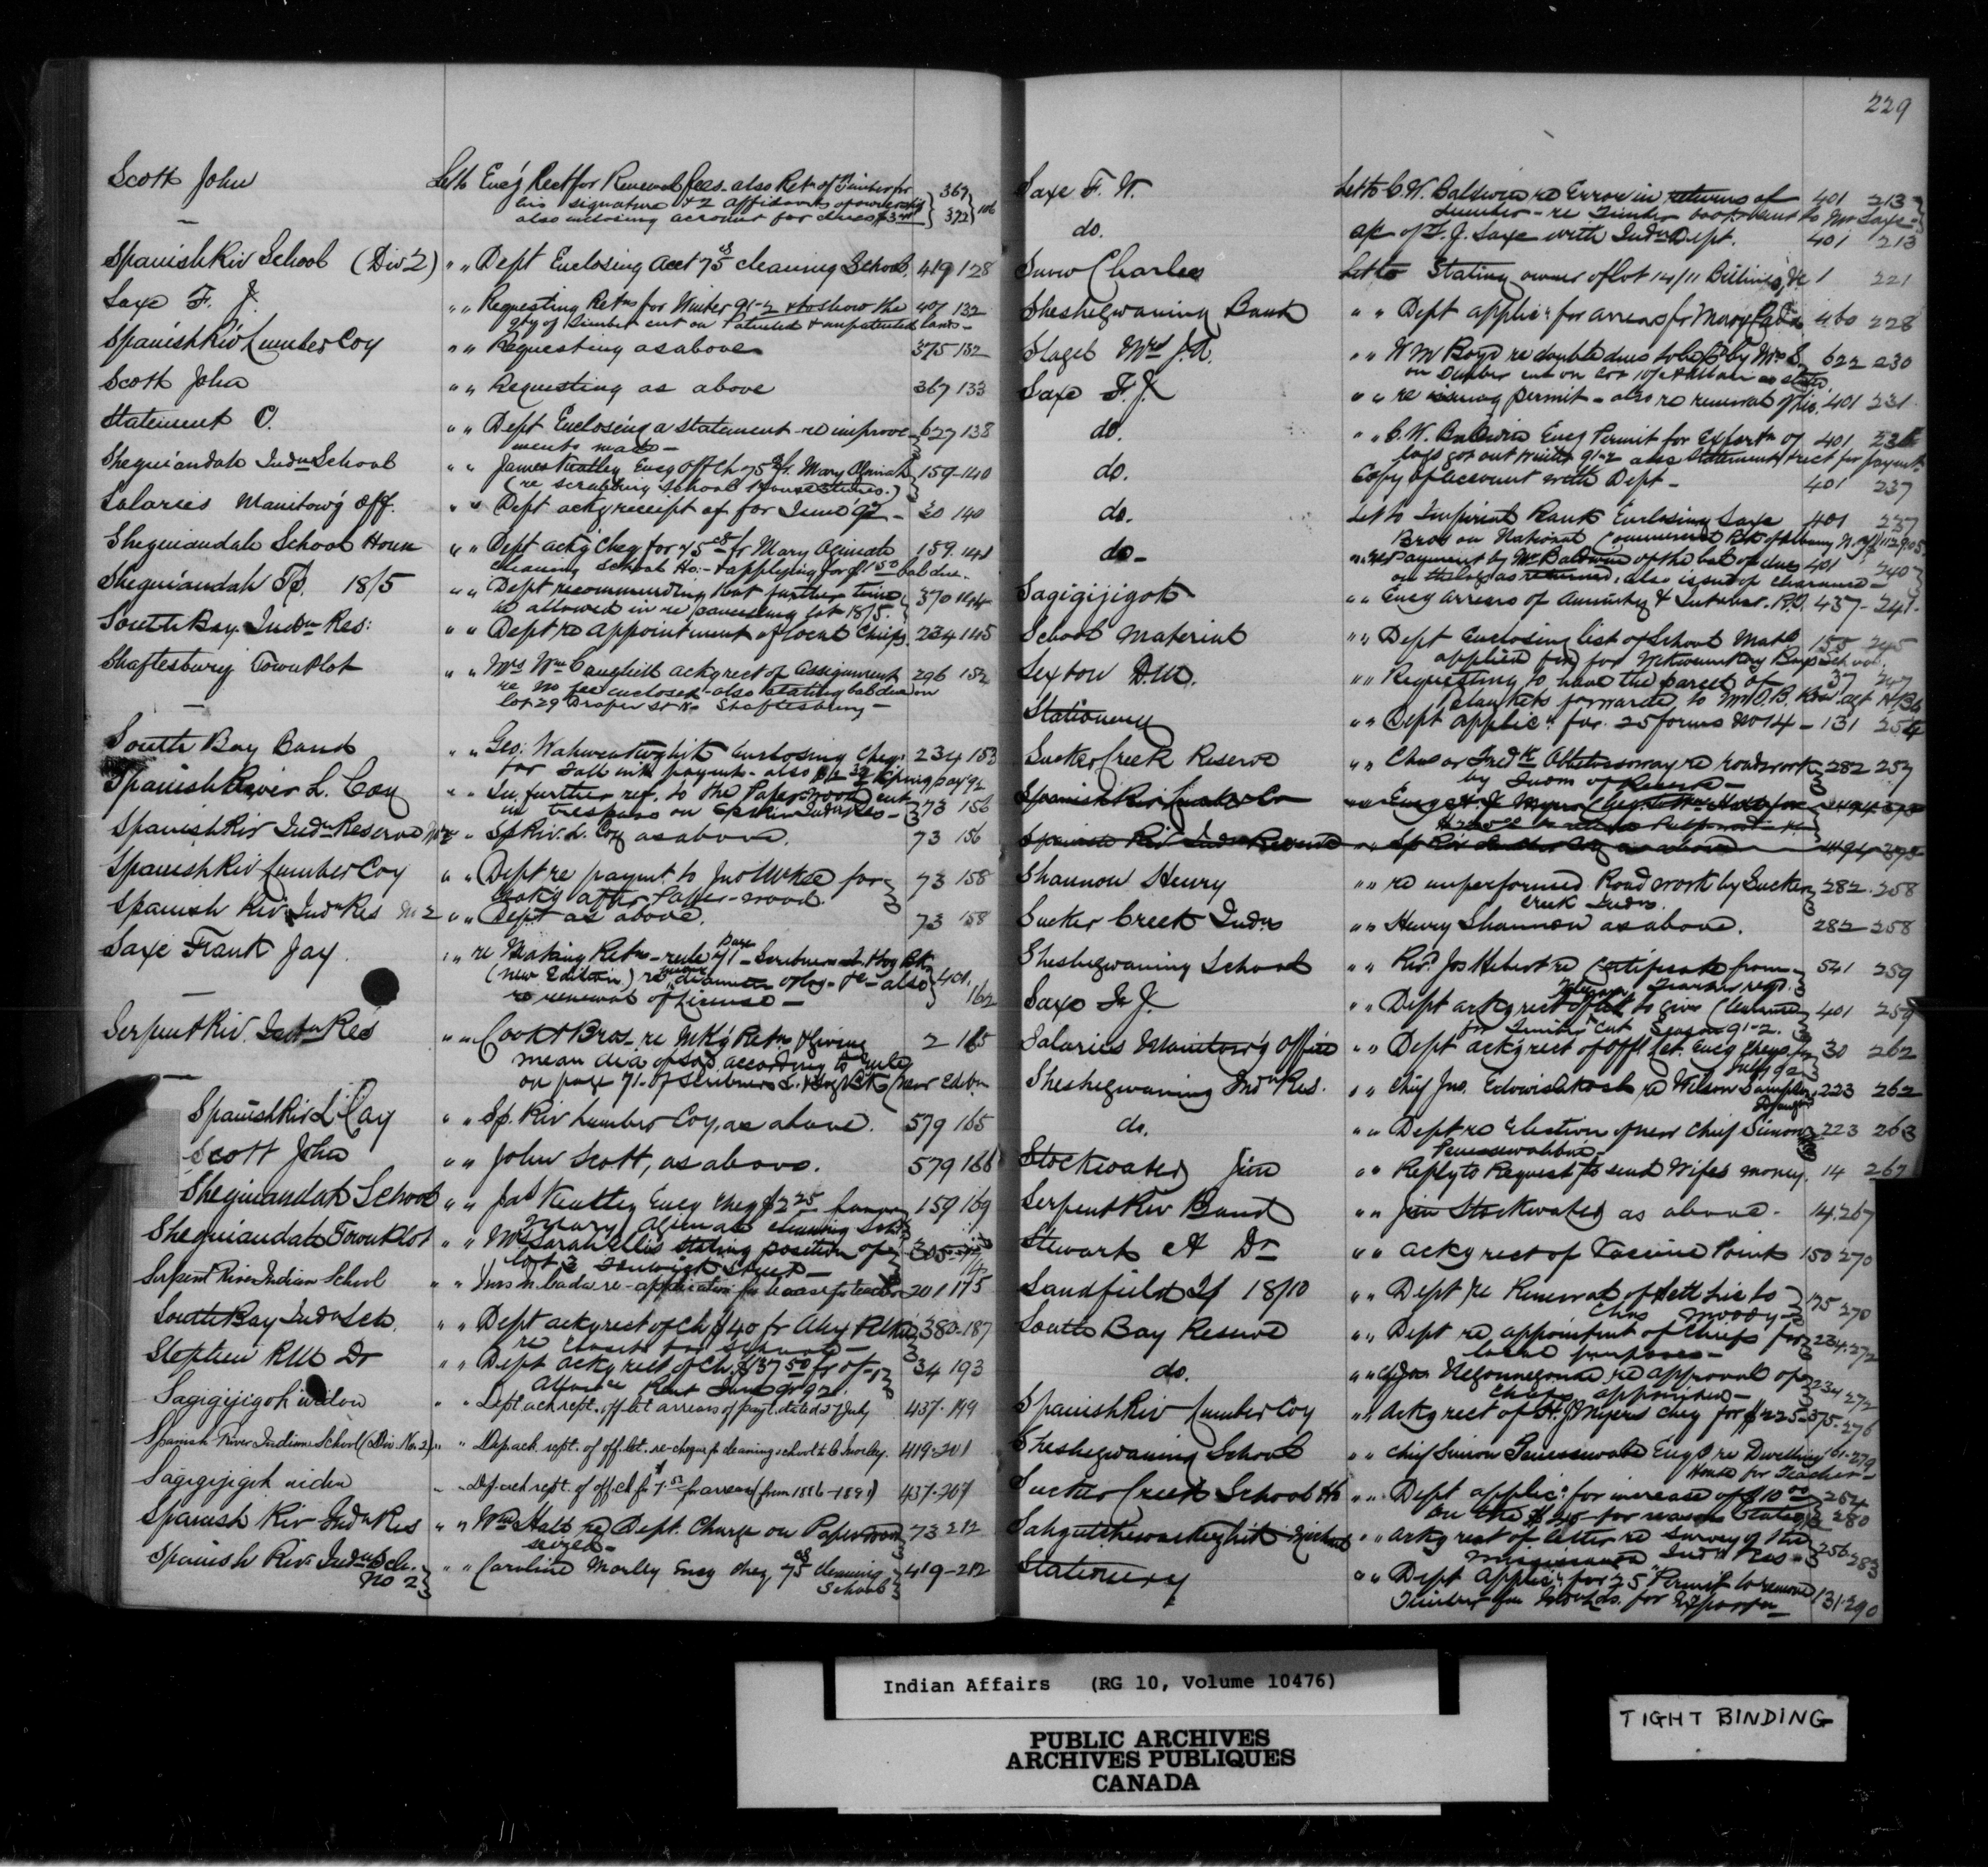 229
Scott John Let to Enc'g Rect for Renewal fees. also Retn of Timber for
his signature & 2 affidavits of ownership 367
also inclosing account for dues 372 106
Spanish Riv School (Div 2) " " Dept Enclosing Acct 75 cs cleaning School. 419 128
Saxe F. J. " " Requesting Retns for Winter 91-2 & to show the 401 132
qty of timber cut on Patented & unpatented lands -
Spanish Riv Lumber Coy " " Requesting as above 375 132
Scott John " " Requesting as above 367 133
Statement O. " " Dept Enclosing a statement re improve- 627 138
ments made -
Sheguiandah Indn School " " James Keatley Encg Off Ch 75 cs fr. Mary 159-140
(re scrubbing School House)
Salaries Manitow'g Off. " " Dept ackg receipt of for June 92 - 30 140
Sheguiandah School House " " Dept ack'g Cheq for 75 cs fr Mary 159. 141
cleaning School Ho: - & applying for $1.50 bal due.
Sheguiandah Tp. 18/5 " " Dept recommending that further time 370 144
be allowed in re cancelling lot 18/5.
South Bay Indn Res: " " Dept re Appointment of local Chiefs. 234 145
Shaftesbury Town Plot " " Mrs Wm ackg rect of assignment 296 152
re no fee enclosed - also stating bal due on
lot 29 Draper St Shaftesbury -
South Bay Band " " Geo. enclosing Cheq 234 153
for Fall payents - also Spring pay 92
Spanish River L. Coy " " In further ref. to the Paper wood cut 73 156
in trespass on Indn Res -
Spanish Riv Indn Reserve No 2 " " Sp Riv. L. Coy as above. 73 156
Spanish Riv Lumber Coy " " Dept re payment to Jno McKee for 73 158
look'g after Paper-wood
Spanish Riv Indn Res No 2 " " Dept as above. 73 158
Saxe Frank Jay. " " re Making Retns - rule page 71 - Scribners L. & Log Bk
(new Edition) re diameter of log - &c - also 401.
re renewal of license - 162
Serpent Riv. Indn Res " " Cook & Bros. re Mk'g Retns & giving 2 165
mean dia of logs according to rule
on page 71 - of Scribners L. & Log Bk (new Editn
Spanish Riv L. Coy " " Sp. Riv Lumber Coy, as above. 579 165
Scott John " " John Scott, as above. 579 166
Sheguiandah School " " Jas Keatley Encg cheq $2.25 159 169
Mary cleaning School
Sheguiandah Town Plot " " Mrs Sarah Ellis stating position of 305
lot 3 Street -
Serpent River Indian School " " re - application for lease for teacher 201 175
South Bay Indn Sch. " " Dept ackg rect of Ch $40 fr Alex 380-187
re Closets for School -
Stephen R M Dr " " Dept ackg rect of Ch $137.50 34 193
Rent June qr 92.
Sagigijigoh widow " " Dept ack rept. off let arrears of payt. dated 27 July 437-199
Spanish River Indian School (Div. No. 2) " " Dep ack. rept. of off. let. re-cheque fr cleaning school to C Morley. 419-201
Sagigijigoh widow " " Dep ack rept. of off. ch for arrears (from 1886-1891) 437-207
Spanish Riv Indn Res " " Wm Hall re Dept. Charge on Paper wood 73 212
seized -
Spanish Riv. Indn Sch. " " Caroline Morley Encg cheq 75 cs cleaning 419-212
No 2 School
Saxe F. W. Let to C. W. Baldwin re Error in returns of 401 213
Lumber - re Timber book sent to Mr Saxe -
do. a/c of F. J. Saxe with Indn Dept. 401 213
Snow Charles Let to Stating owner of lot 14/11 Billings &c 1 221
Sheshegwaning Band " " Dept applicn for arrears for Mary 460 228
Slagel Mrs J. A. " " W M Boyd re double dues to be pd by Mrs S. 622 230
on timber cut on Con 10
Saxe F. J. " " re issuing permit - also re renewal of lic. 401 231
do. " " C. W. Baldwin Encg Permit for Exportn of 401 236
logs got out winter 91-2 also Statement & rect for payment
do. Copy of account with Dept - 401 237
do. Let to Imperial Bank Enclosing Saxe 401 237
on National Commercial Bk of Albany N.Y.
do - " " re payment by Mr Baldwin of the bal of dues 401 240
on the logs as returned, also issue of clearance -
Sagigijigoh " " Encg arrears of Annuity & Interest. P.O. 437-241-
School Material " " Dept Enclosing list of School Matl 155 245
applied for, for Boys School
Sexton D.M. " " Requesting to have the parcel of 37 247
blankets forwarded to Mr
Stationery " " Dept applicn for. 25 forms No 14 - 131 254
Sucker Creek Reserve " " Chas or Fredk re roadwork 282 257
by Indns of Reserve -
Spanish Riv Lumber Co 494 375
Spanish Riv Indn Reserve " " Sp Riv Lumber Coy as above 494 375
Shannon Henry " " re unperformed Road work by Sucker 282-258
Creek Indns
Sucker Creek Indns " " Henry Shannon as above. 282-258
Sheshegwaning School " " Revd Jos Hebert re Certificate from 521 259
Teacher reqd.
Saxe F. J. " " Dept ackg rect of let to give Clearance 401 259
for Timber cut Season 91-2.
Salaries Manitow'g Office " " Dept ack'g rect of Offl let. Encg cheqs. for 30 262
July 92
Sheshegwaning Indn Res. " " Chief Jno. Edowishkosh re Wilson Sampson 223 262
do. " " Dept re Election of new chief Simon 223 263
Stockwater Jim " " Reply to Request to send Wifes money. 14 267
Serpent Riv Band " " Jim Stockwater as above - 14.267
Stewart A Dr " " ackg rect of Vaccine Points 150 270
Sandfield Tp 18/10 " " Dept re Renewal of Sett Lic to 175 270
Chas Moody -
South Bay Reserve " " Dept re appointmt of Chiefs for 234.272
local purposes -
do. " " re approval of 234 272
chiefs appointed -
Spanish Riv Lumber Coy " " Ackg rect of H. J. Myers cheq for $225- 375-276
Sheshegwaning School " " Chief Simon Encg re Dwelling 161-279
House for Teacher -
Sucker Creek School Ho " " Dept applicn for increase of $10.00 254
on the for reasons stated 280
" " ackg rect of letter re survey of the 256-283
Mississauga Indn Res -
Stationery " " Dept applicn for 25 Permit to remove 131-290
Timber for Exportn
Indian Affairs (RG 10, Volume 10476)
PUBLIC ARCHIVES
ARCHIVES PUBLIQUES
CANADA
TIGHT BINDING